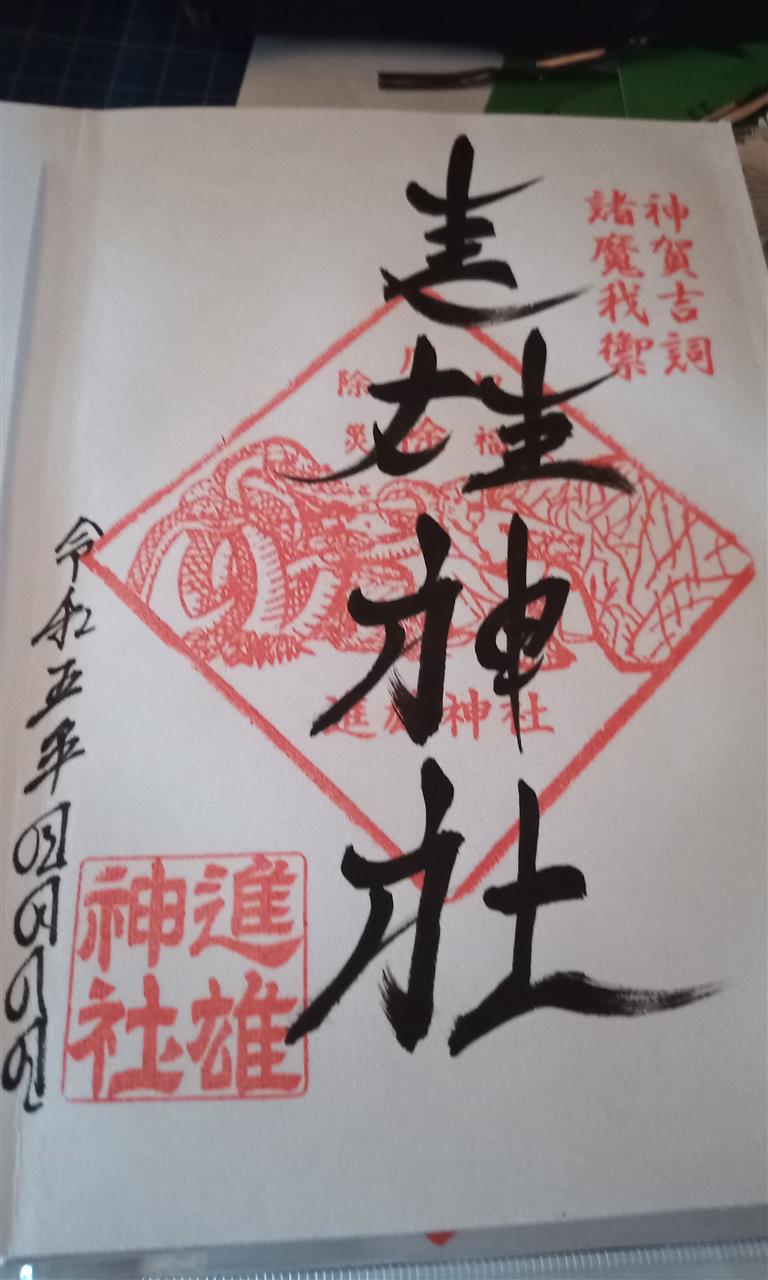 神賀吉詞
諸魔我禦
進雄神社
除災
福
進雄神社
進雄
神社
令和五年四月